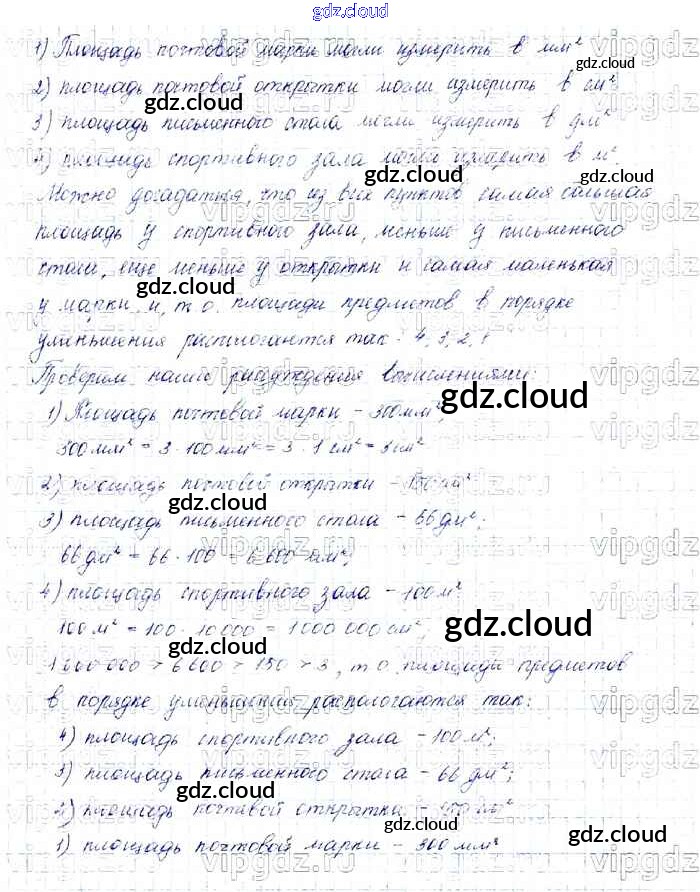 gdz.cloud
1) Площадь почтовой марки могли измерить в мм²
2) площадь почтовой открытки могли измерить в см²
3) площадь письменного стола могли измерить в дм²
4) площадь спортивного зала могли измерить в м².
Можно догадаться, что из всех пунктов самая большая
площадь у спортивного зала, меньше у письменного
стола, еще меньше у открытки и самая маленькая
у марки и, т.о. площади предметов в порядке
уменьшения располагаются так: 4, 3, 2, 1
Проверим наши рассуждения вычислениями:
1) Площадь почтовой марки - 300 мм²,
300 мм² = 3 · 100 мм² = 3 · 1 см² = 3 см²
2) площадь почтовой открытки - 150 см²
3) площадь письменного стола - 66 дм²;
66 дм² = 66 · 100 = 6 600 см²;
4) площадь спортивного зала - 100 м²
100 м² = 100 · 10000 = 1 000 000 см²;
1 000 000 > 6 600 > 150 > 3, т.о. площади предметов
в порядке уменьшения распологаются так:
4) площадь спортивного зала - 100 м²;
3) площадь письменного стола - 66 дм²;
2) площадь почтовой открытки - 150 см²
1) площадь почтовой марки - 300 мм²